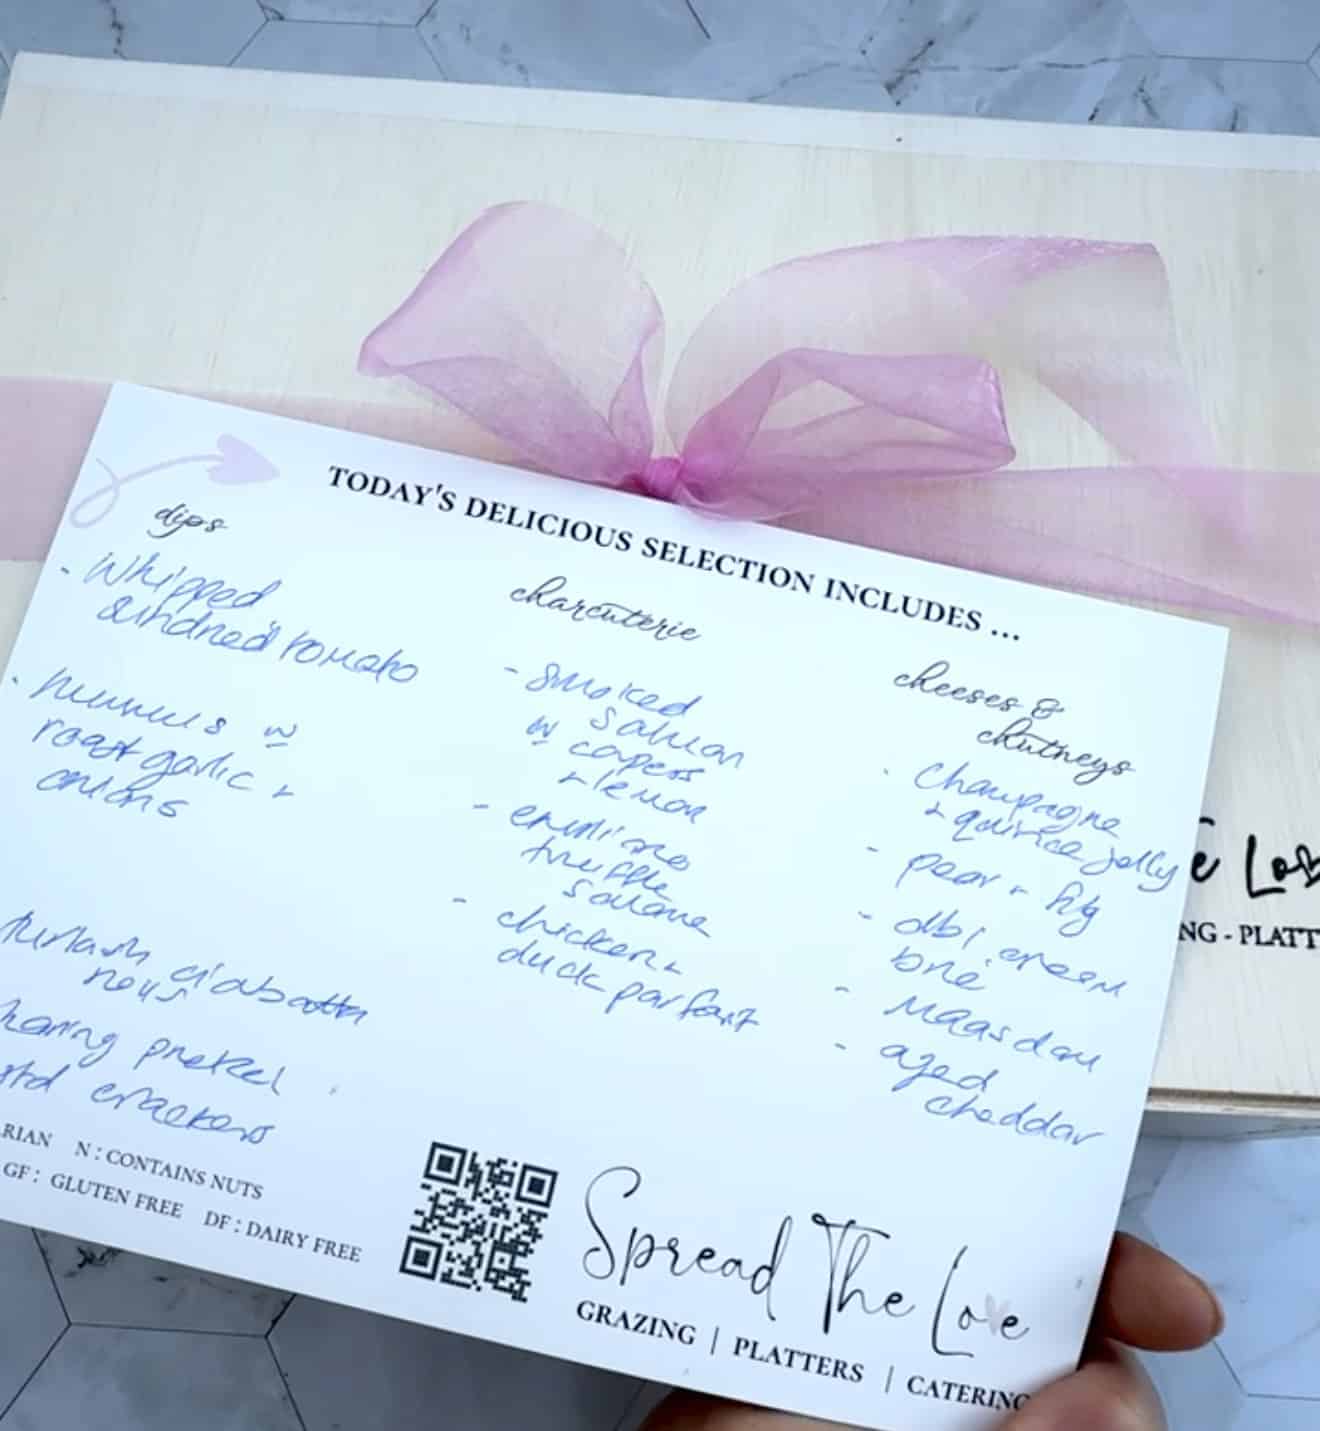 TODAY'S DELICIOUS SELECTION INCLUDES ...
dips
- Whipped
sundried tomato
- hummus w
roast garlic +
onions
turkish ciabatta
pretzel
std crackers
charcuterie
- smoked
salmon
w capers
+ lemon
- truffle
salame
- chicken +
duck parfait
cheeses &
chutneys
- Champagne
+ quince jelly
- pear + fig
- dbl cream
brie
- Maasdam
- aged
cheddar
RIAN N : CONTAINS NUTS
GF : GLUTEN FREE DF : DAIRY FREE
Spread The Love
GRAZING | PLATTERS | CATERING
e Lo
NG - PLATT